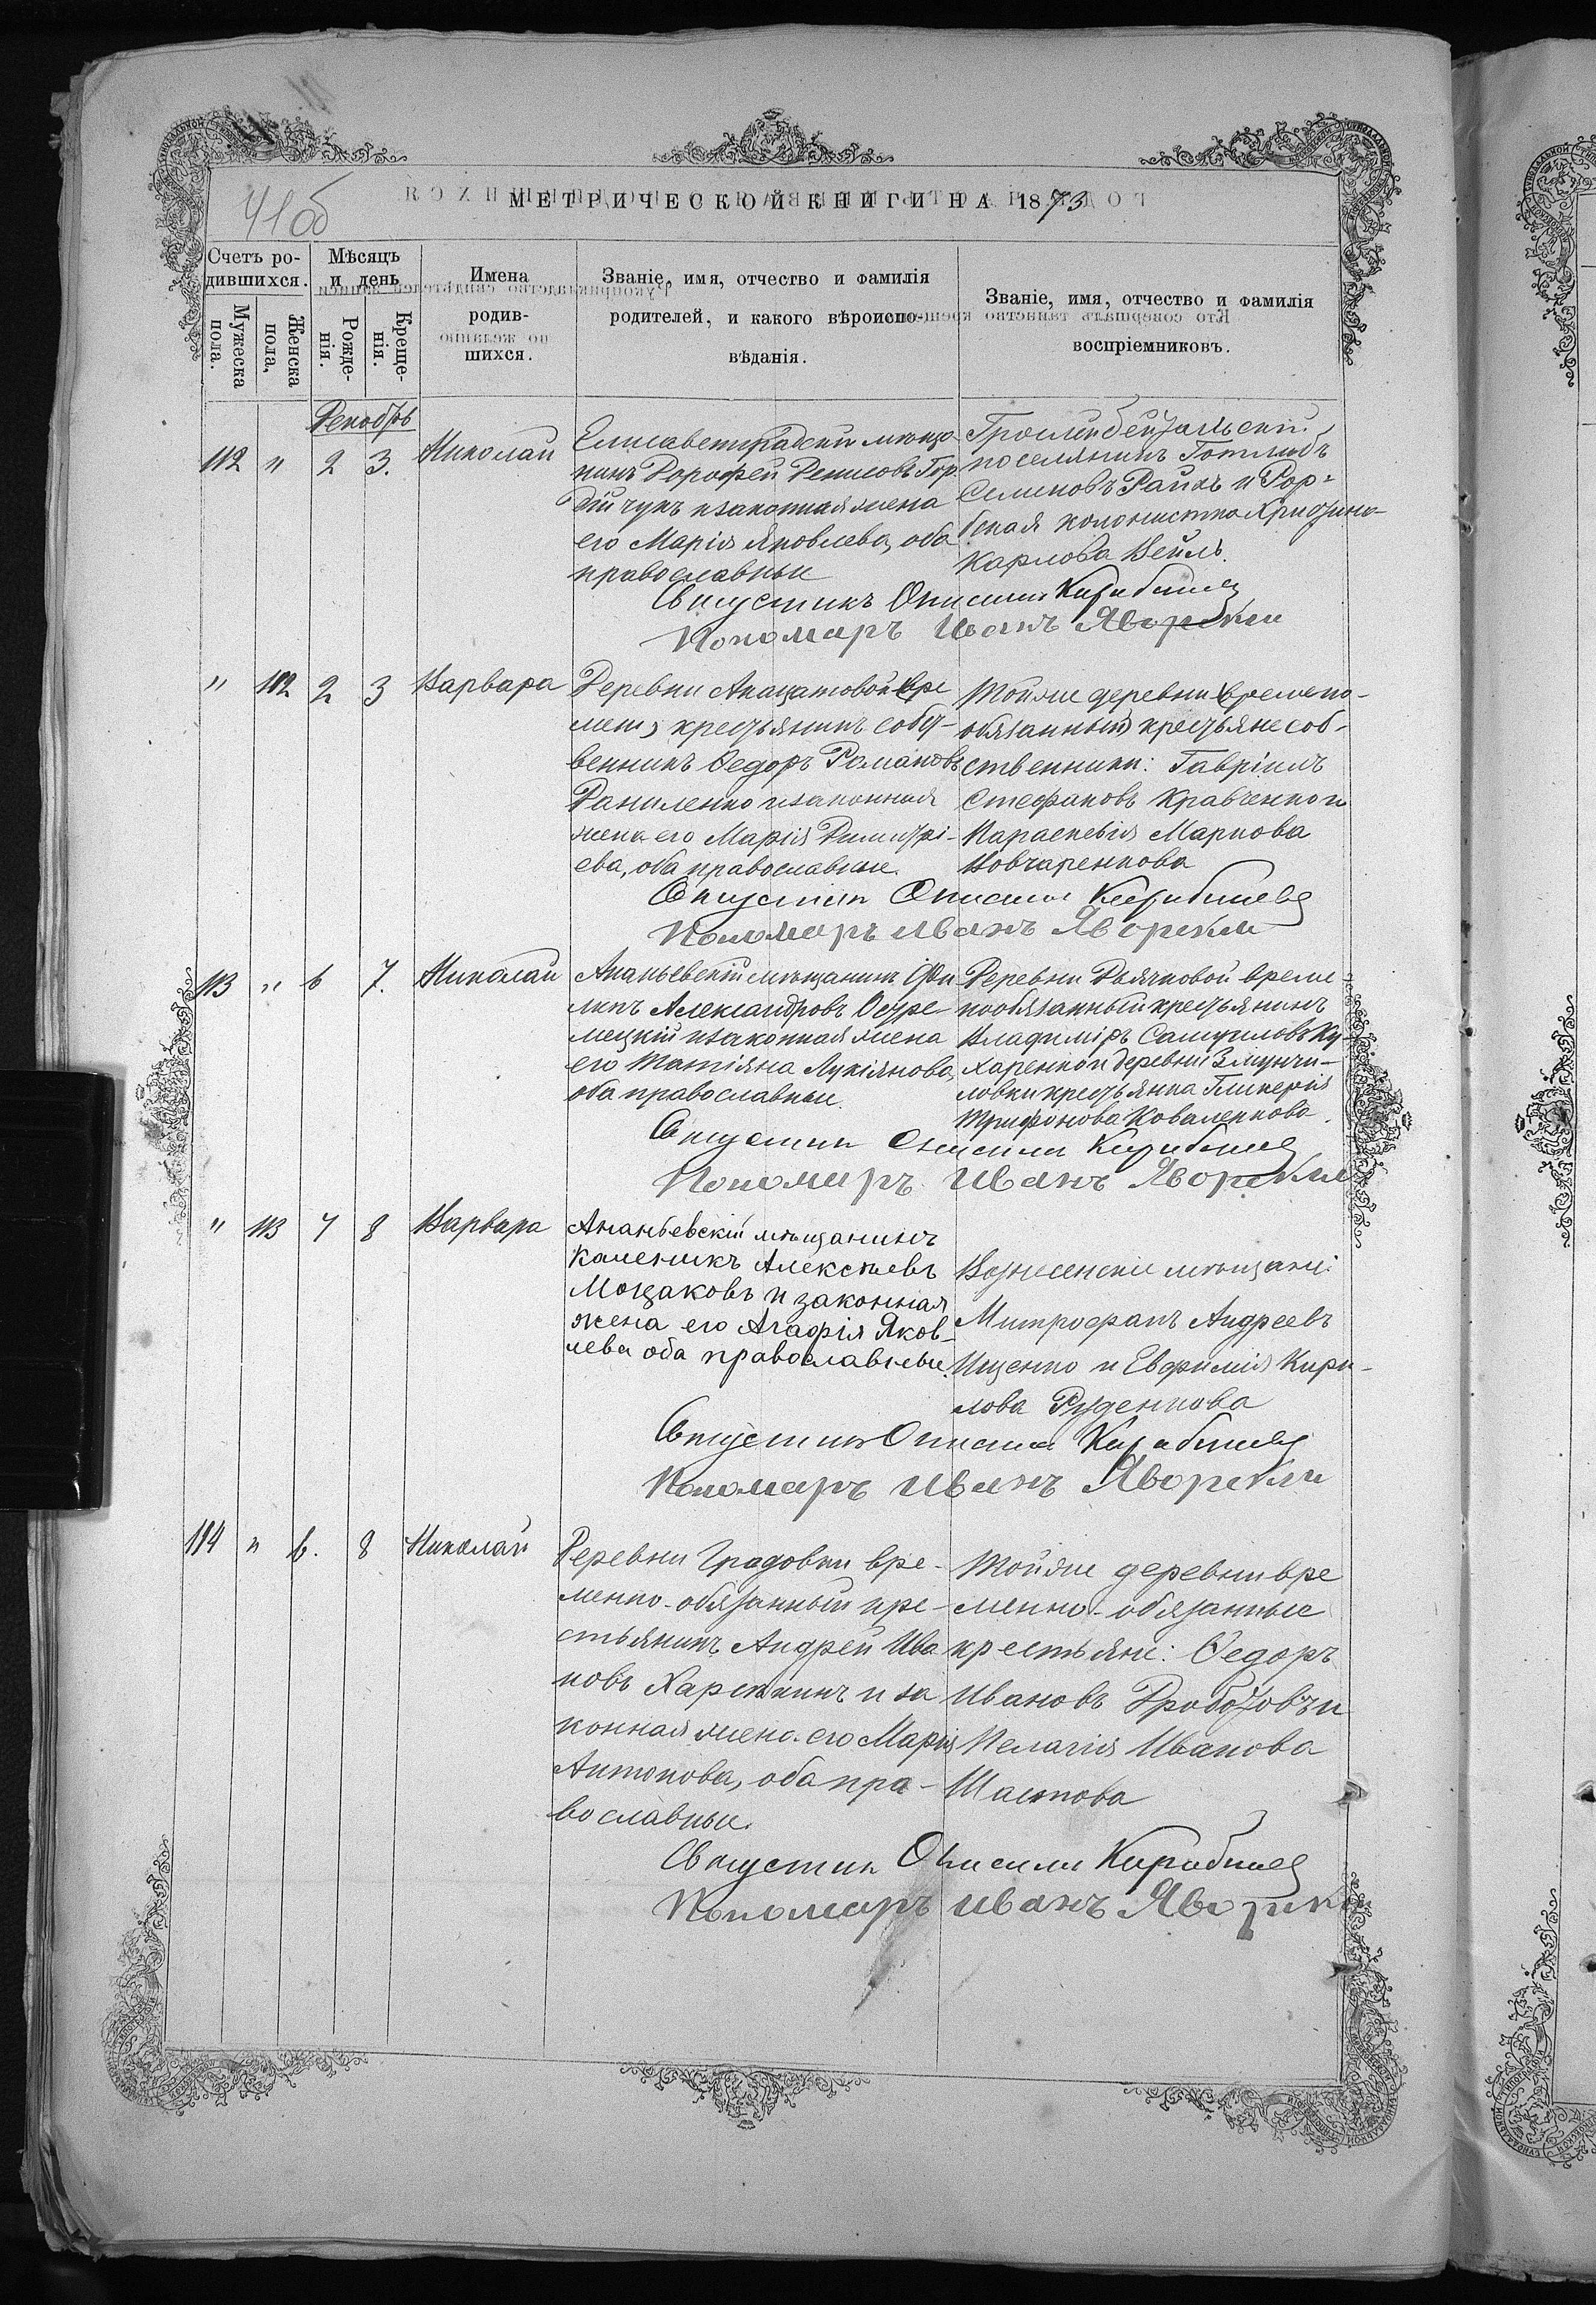 41об
МЕТРИЧЕСКОЙ КНИГИ НА 1873
Счетъ ро-
дившихся.
Мужеска
пола.
Женска
пола,
Мѣсяцъ
и день
Рожде-
нія.
Креще-
нія.
Имена
родив-
шихся.
Званіе, имя, отчество и фамилія
родителей, и какого вѣроиспо-
вѣданія.
Званіе, имя, отчество и фамилія
воспріемниковъ.
Декабрь
112 " 2 3. Николай
Елисаветградскій мѣща-
нинъ Дорофей Денисовъ Гор-
дійчукъ и законная жена
его Марія Яковлева, оба
православные
поселянинъ Готлибъ
Семеновъ Райхъ и Рор-
бская колонистка
Карлова Вейль.
Священникъ
Пономарь Иванъ Яворскій
" 112 2 3 Варвара
Деревни Акацатовой вре
мен, крестьянинъ собст-
венникъ Ѳедоръ Романовъ
Даниленко и законная
жена его Марія Димитрі-
ева, оба православные.
Тойже деревни времено-
обязанные крестьяне соб-
ственники: Гавріилъ
Стефановъ Кравченко и
Параскевія Маркова
Вовчаренкова
Священникъ
Пономарь Иванъ Яворскій
113 " 6 7. Николай
Ананьевскій мѣщанинъ Фи-
липъ Александровъ Остре-
мецкій и законная жена
его Татіяна Лукіянова,
оба православные.
Деревни Дьячковой време-
нообязанный крестьянинъ
Владиміръ Самуиловъ Ку-
харенко и деревни
ловки крестьянка Гликерія
Трифонова Коваленкова.
Священникъ
Пономарь Иванъ Яворскій
" 113 7 8 Варвара
Ананьевскій мѣщанинъ
Каленикъ Алексѣевъ
Мощаковъ и законная
жена его Агафія Яков-
лева оба православные.
Вознесенскіе мѣщане:
Митрофанъ Андреевъ
Ищенко и Евфимія Кири-
лова Руденкова
Священникъ
Пономарь Иванъ Яворскій
114 " 6. 8 Николай
Деревни Градовки вре-
менно-обязанный кре-
стьянинъ Андрей Ива
новъ Харсткинъ и за
конная жена его Марія
Антонова, оба пра-
вославные.
Тойже деревни вре
менно-обязанные
крестьяне: Ѳедоръ
Ивановъ Дроботовъ и
Пелагія Иванова
Шастова
Священникъ
Пономарь Иванъ Яворскій